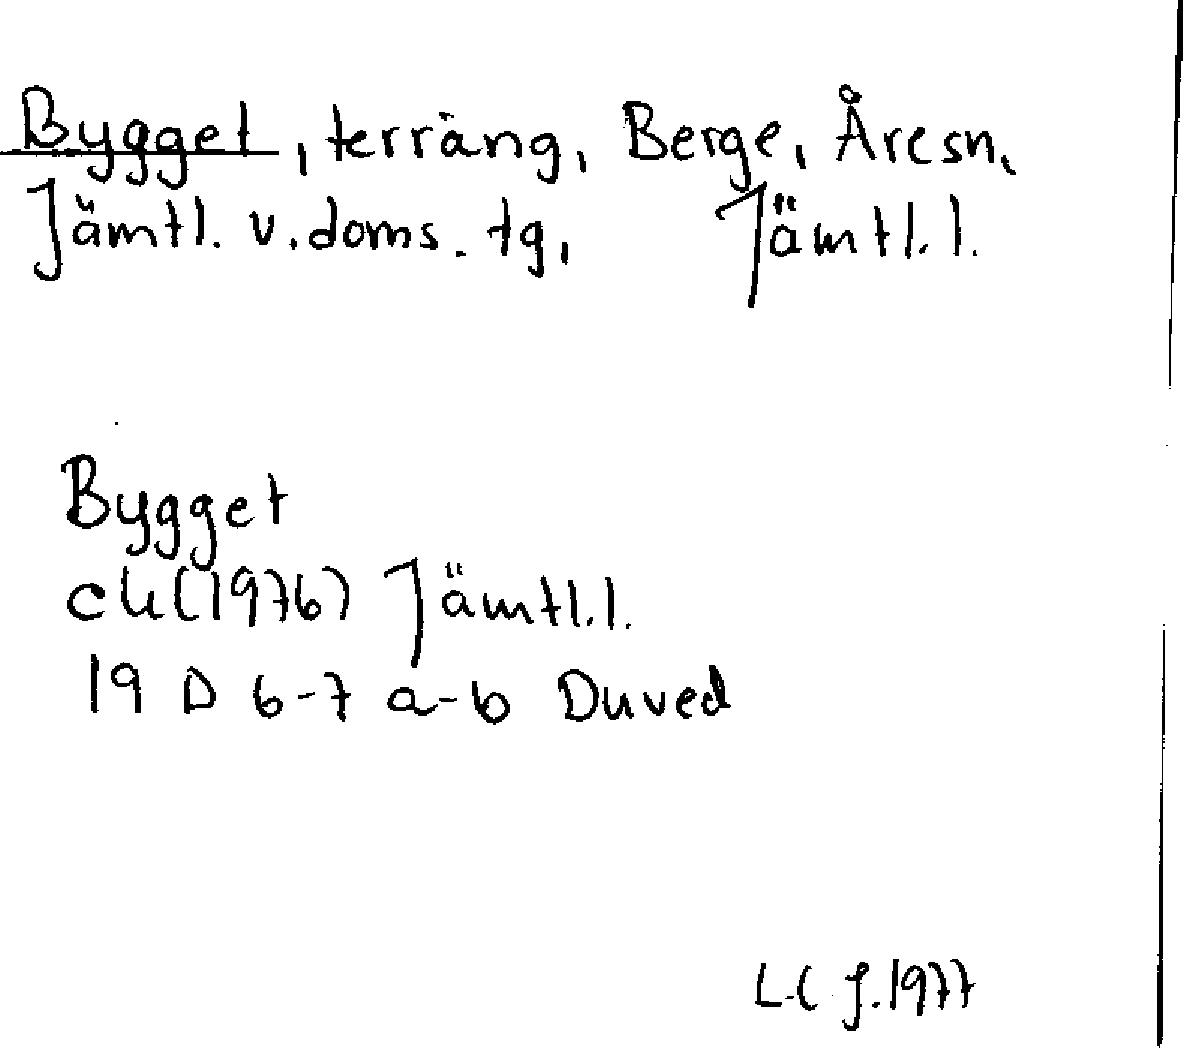 Bygget, terräng, Berge, Åresn,
Jämtl. v. doms. tg, Jämtl. l.
Bygget
ek (1976) Jämtl. l.
19 D 6-7 a-b Duved
L-C J. 1977